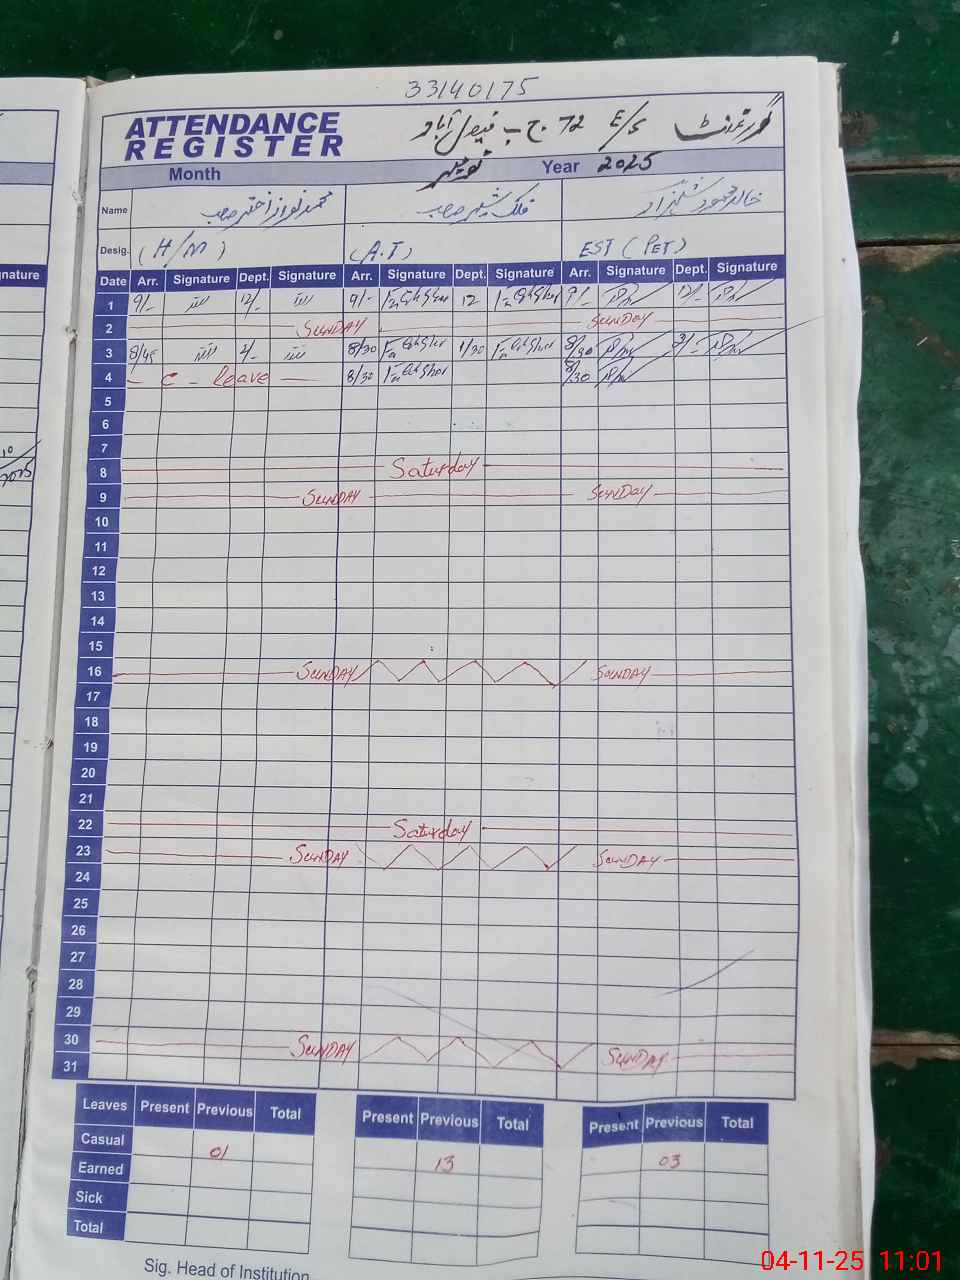 33140175
ATTENDANCE
REGISTER
گورنمنٹ E/S 72 ج ب فیصل آباد
Month نومبر Year 2025
Name محمد نواز اختر صاحب فلک شیر صاحب خالد محمود شہزاد
Desig. (H/M) (A.T) EST (PET)
Date Arr. Signature Dept. Signature Arr. Signature Dept. Signature Arr. Signature Dept. Signature
1 9/- 12/- 9/- 12 9/- 12/-
2 SUNDAY SUNDAY
3 8/45 2/- 8/30 1/30 8/30 2/-
4 C - leave 8/30 8/30
5
6
7
8 Saturday
9 SUNDAY SUNDAY
10
11
12
13
14
15
16 SUNDAY SUNDAY
17
18
19
20
21
22 Saturday
23 SUNDAY SUNDAY
24
25
26
27
28
29
30 SUNDAY SUNDAY
31
Leaves Present Previous Total Present Previous Total Present Previous Total
Casual 01 13 03
Earned
Sick
Total
Sig. Head of Institution
nature
10
2025
04-11-25 11:01